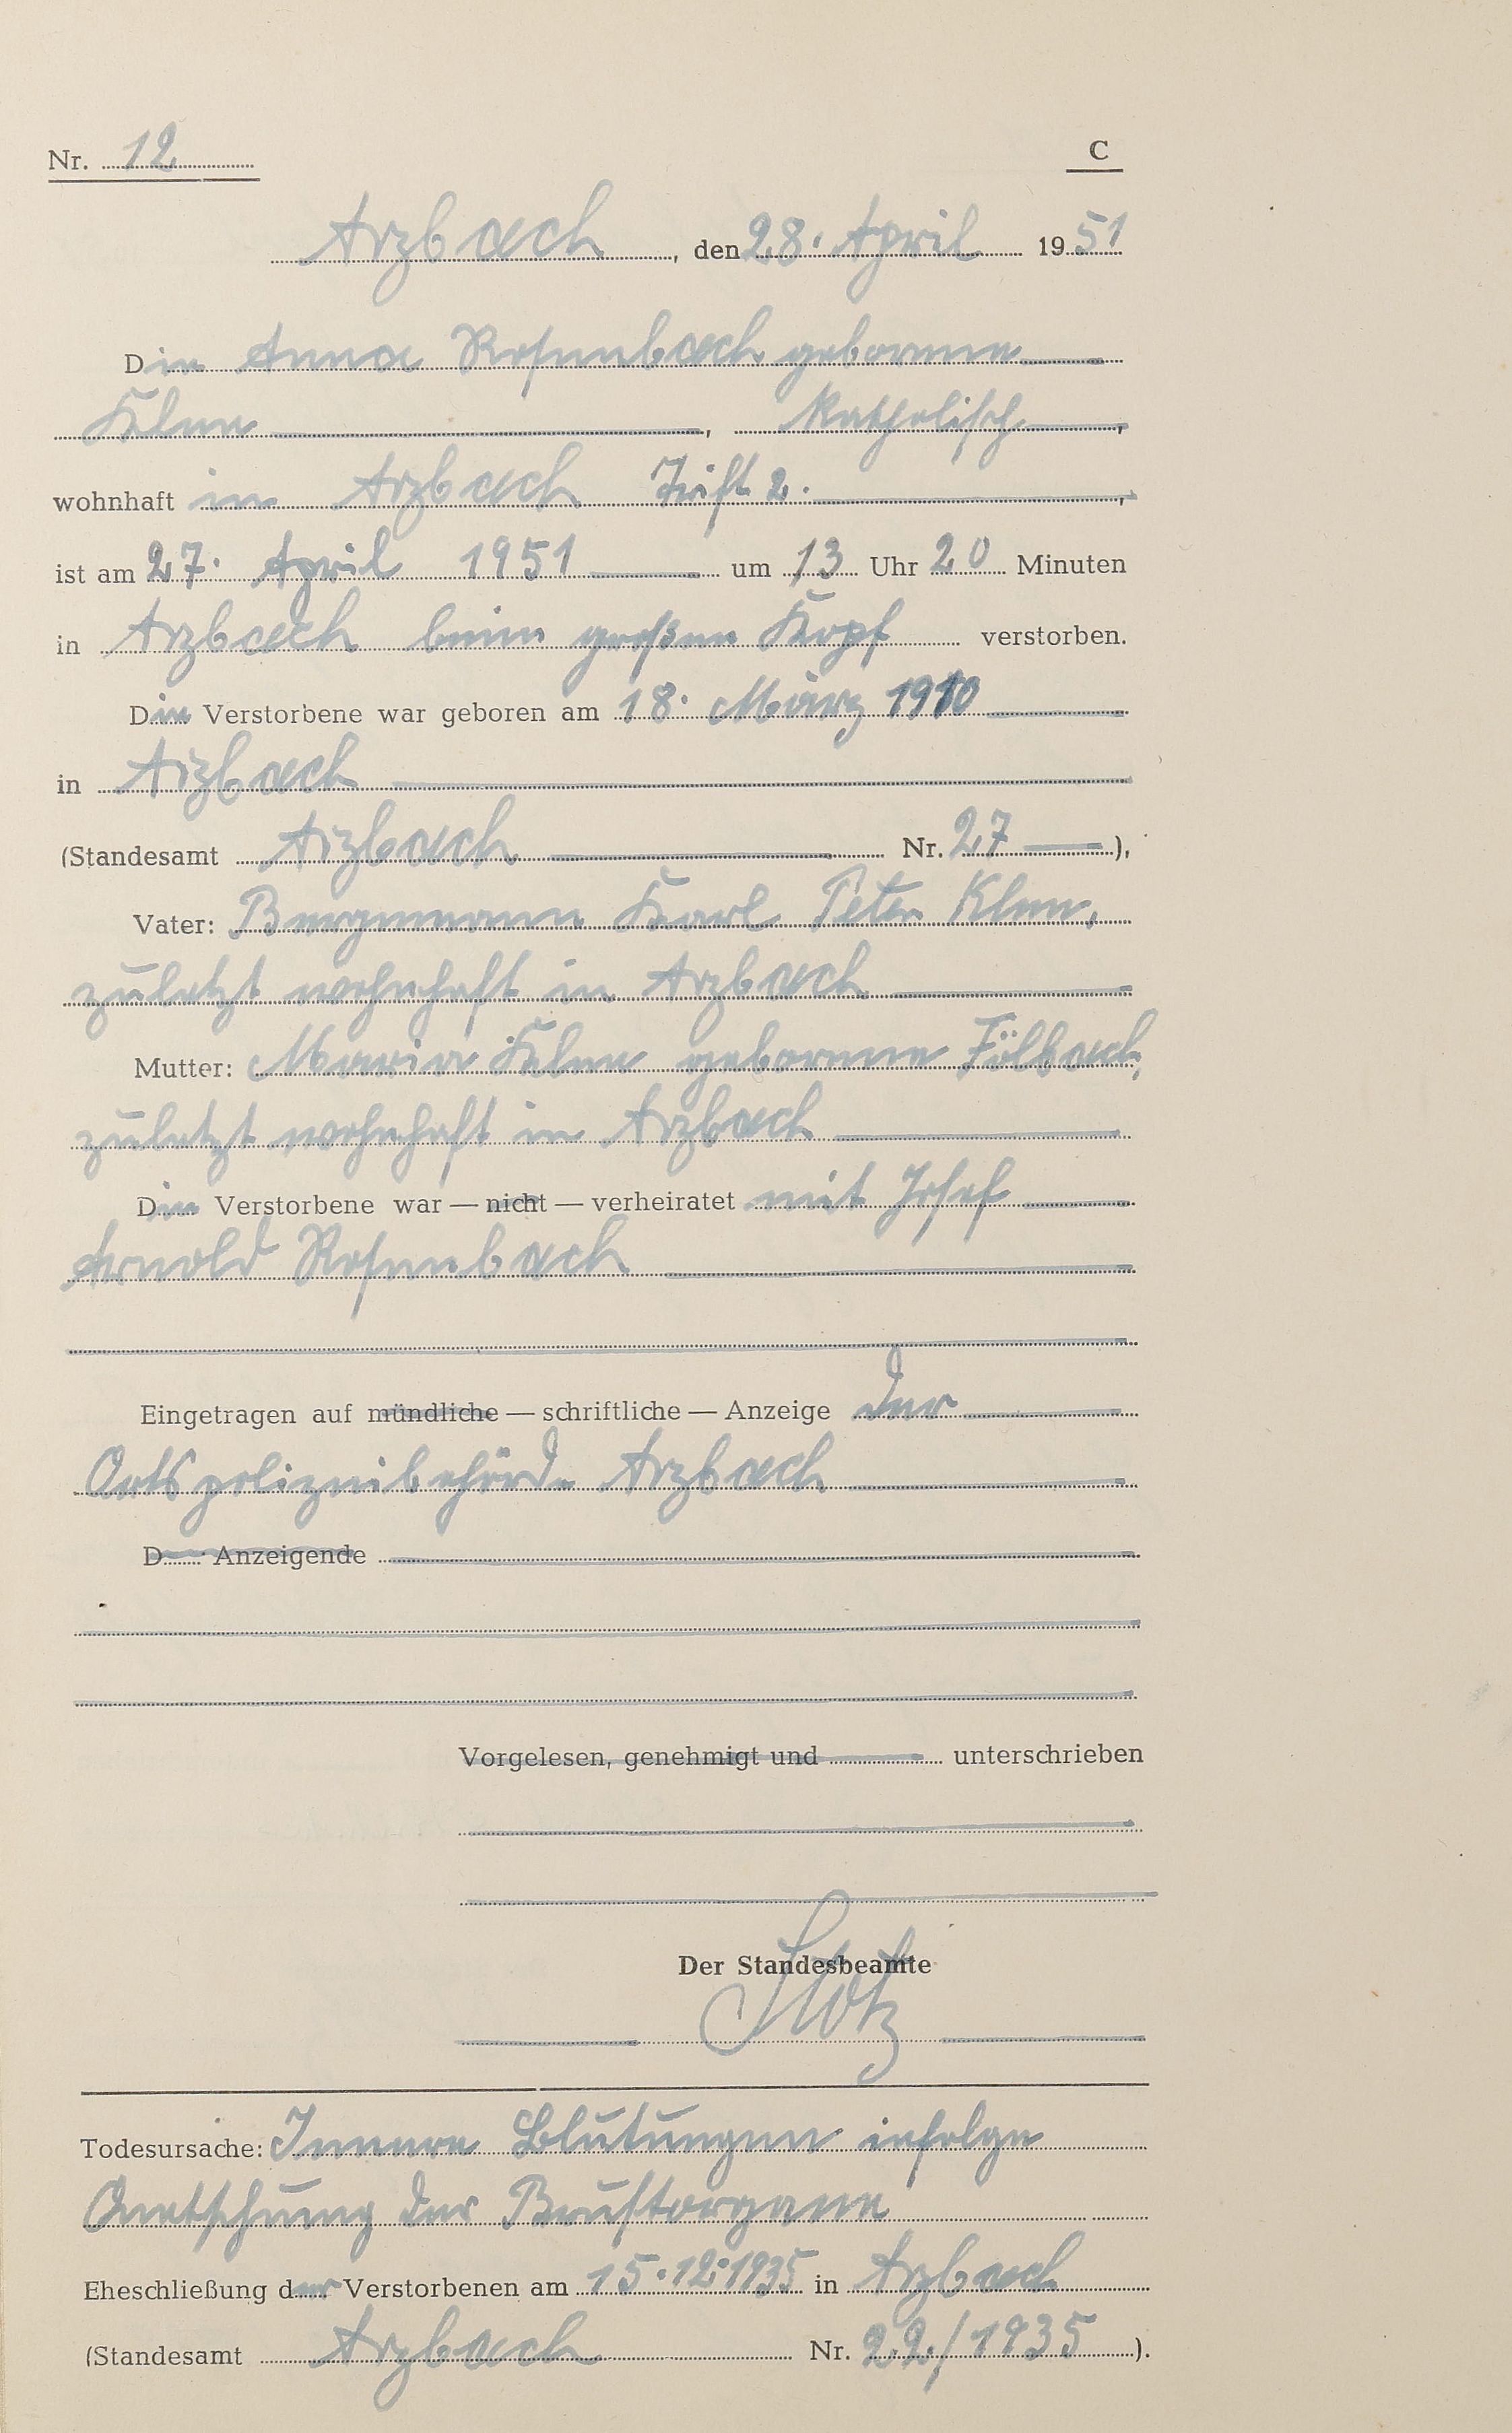 Nr. 12
C
Arzbach, den 28. April 1951
Die Anna Rosenbach geborene
Klee, katholisch,
wohnhaft in Arzbach Trift 2.,
ist am 27. April 1951 um 13 Uhr 20 Minuten
in Arzbach beim großen Kopf verstorben.
Die Verstorbene war geboren am 18. März 1910
in Arzbach
(Standesamt Arzbach Nr. 27),
Vater: Bergmann Karl Peter Klee,
zuletzt wohnhaft in Arzbach
Mutter: Maria Klee geborene Fölbach,
zuletzt wohnhaft in Arzbach
Die Verstorbene war — nicht — verheiratet mit Josef
Arnold Rosenbach
Eingetragen auf mündliche — schriftliche — Anzeige der
Ortspolizeibehörde Arzbach
D Anzeigende
Vorgelesen, genehmigt und unterschrieben
Der Standesbeamte
Todesursache: Innere Blutungen infolge
Quetschung der Brustorgane
Eheschließung der Verstorbenen am 15.12.1935 in Arzbach
(Standesamt Arzbach Nr. 22./1935).